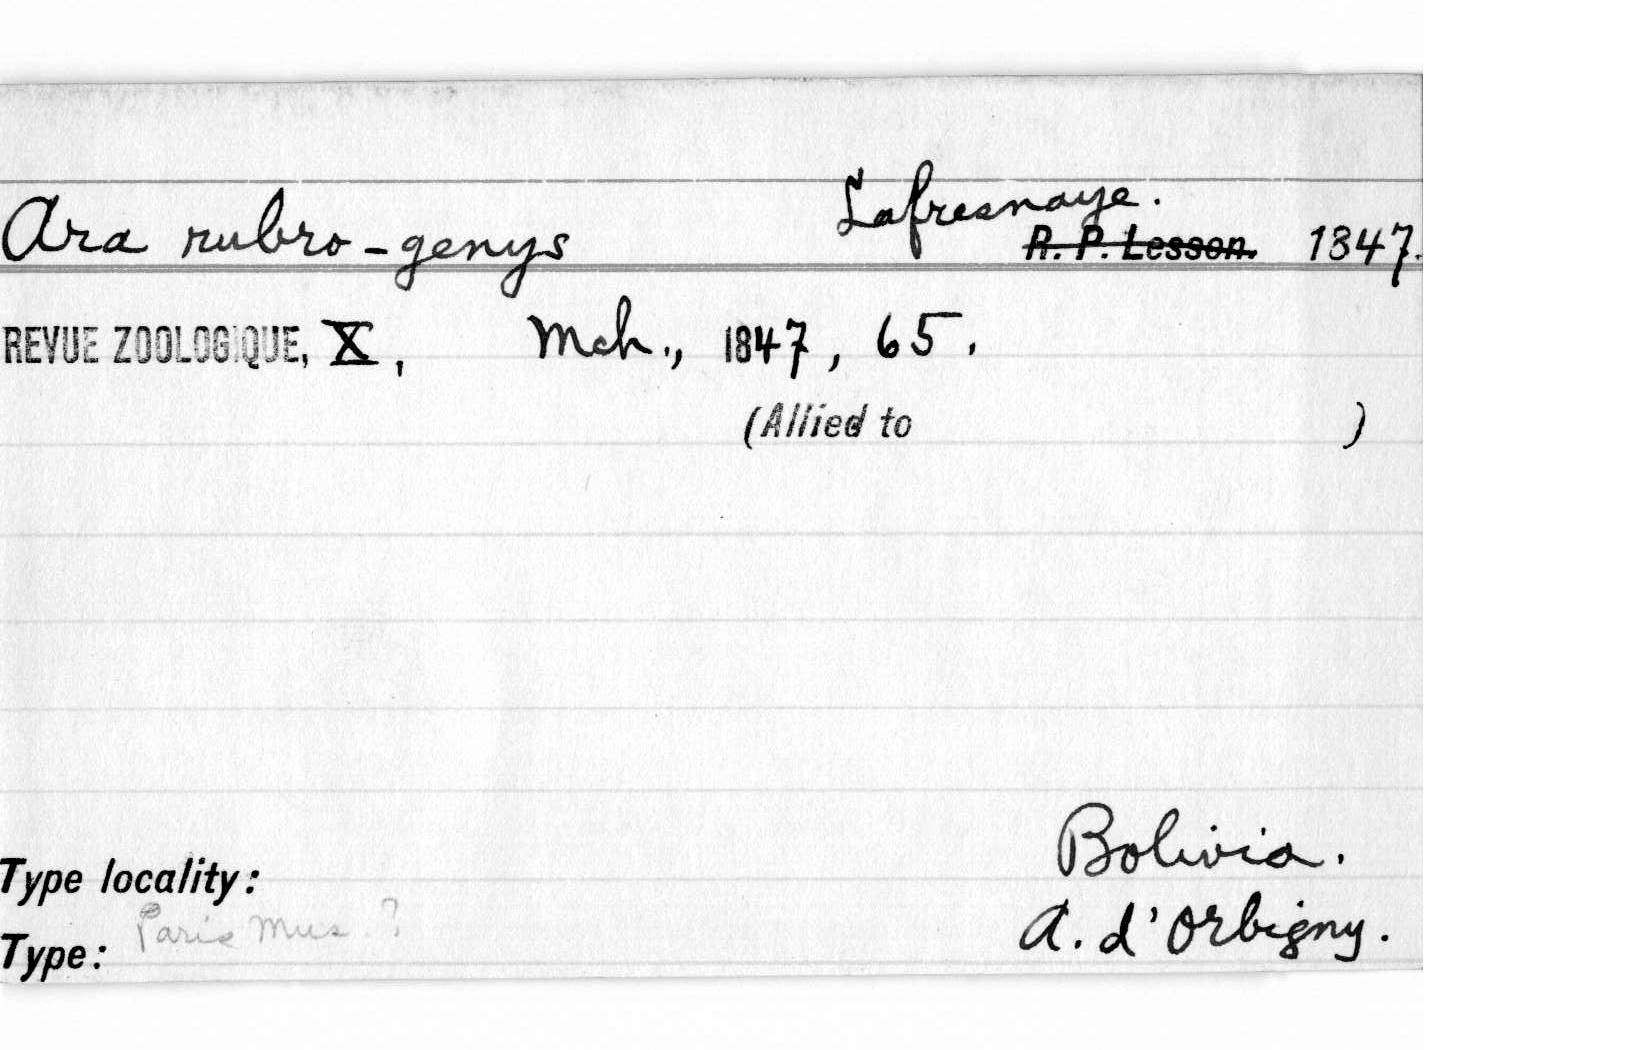 Ara rubro-genys Lafresnaye. R. P. Lesson. 1847.
REVUE ZOOLOGIQUE, X, Mch., 1847, 65.
(Allied to )
Bolivia.
Type locality:
Paris Mus. ? A. d'Orbigny.
Type: